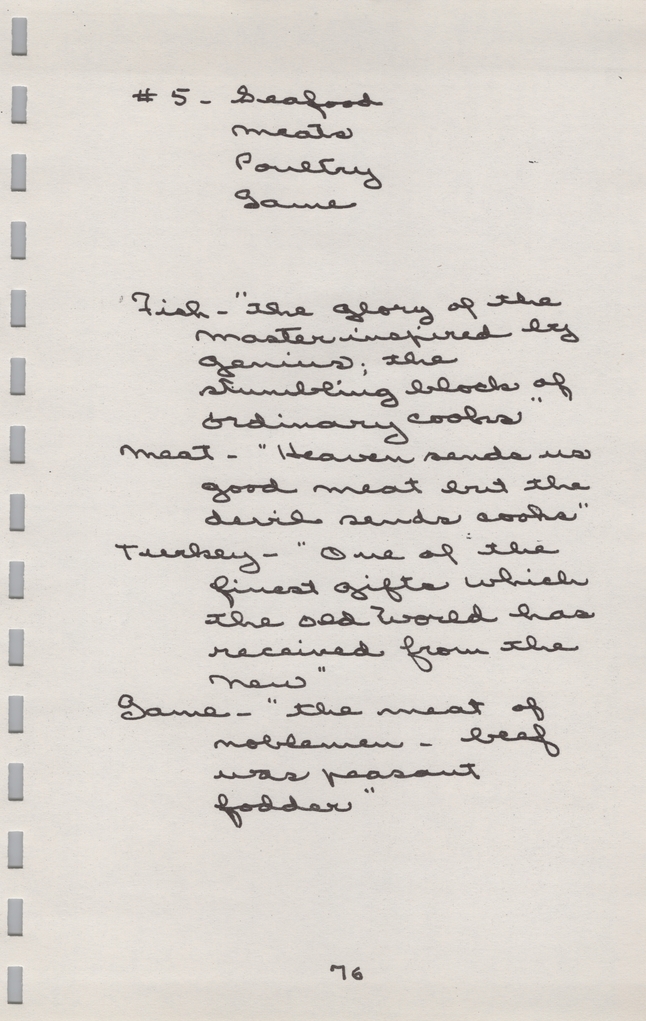 # 5 - Seafood
Meats
Poultry
Game
Fish - "the glory of the
master inspired by
genius; the
stumbling block of
ordinary cooks"
Meat - "Heaven sends us
good meat but the
devil sends cooks"
Turkey - "One of the
finest gifts which
the old World has
received from the
new"
Game - "the meat of
noblemen - beef
was peasant
fodder"
76